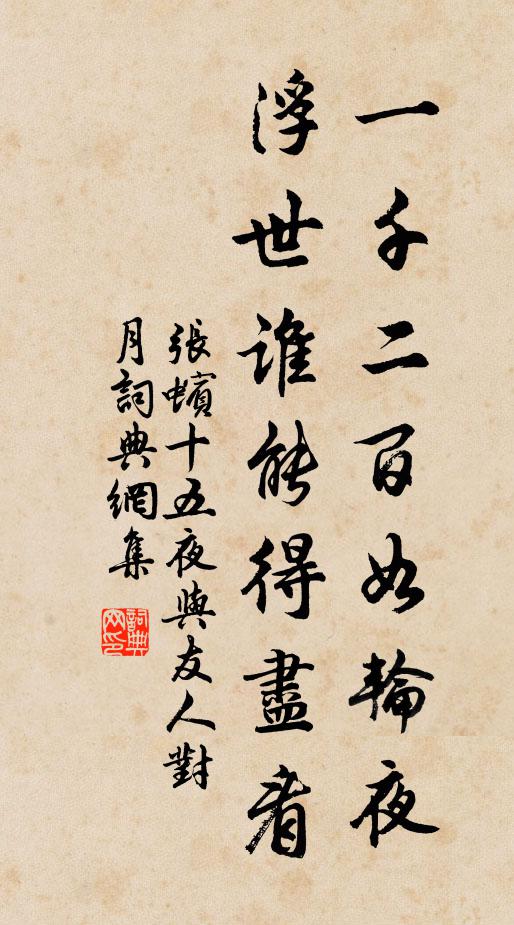 一千二百如輪夜
浮世誰能得盡看
張蠙十五夜與友人對
月詞典網集
詞典
网印